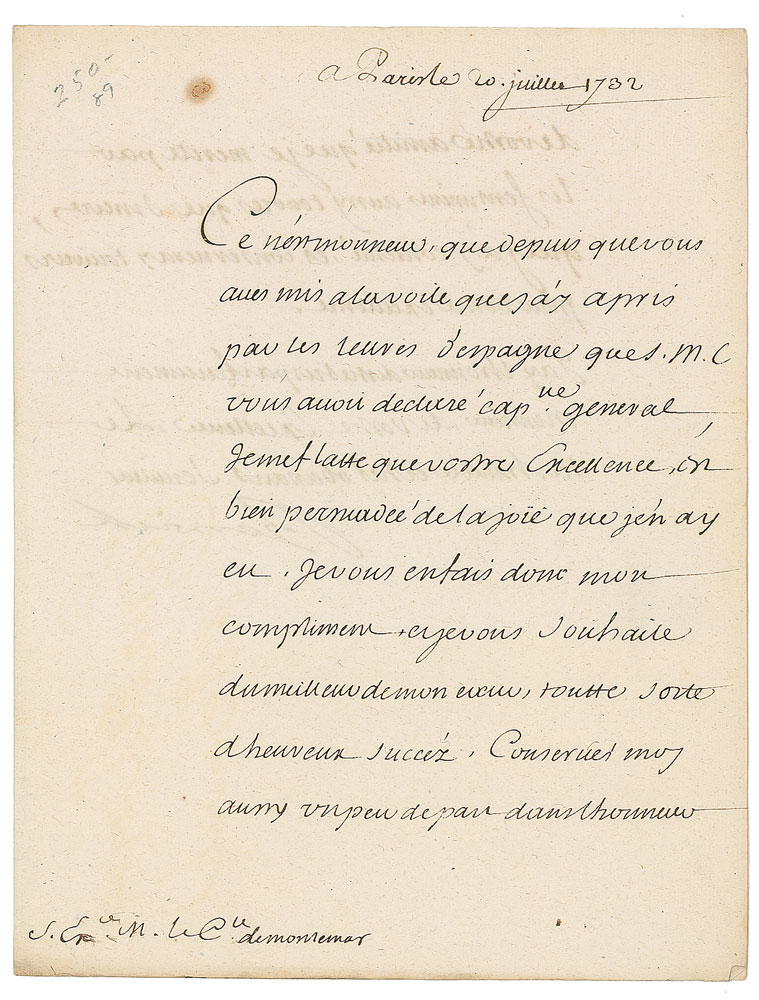 250-
89
a Paris le 20. juillet 1732
Ce n'est monsieur, que depuis que vous
aves mis a la voile que j'ay apris
par les lettres d'espagne que S. M. C
vous avoit declaré cap.ne general
Je me flatte que vostre Excellence, est
bien persuadée de la joie que j'en ay
eu. Je vous en fais donc mon
compliment, et je vous souhaite
du meilleur de mon cœur, toutte sorte
d'heureux succéz. Conservés moy
aussy un peu de part dans l'honneur
S. Ex.ce M. le C.te de montemar